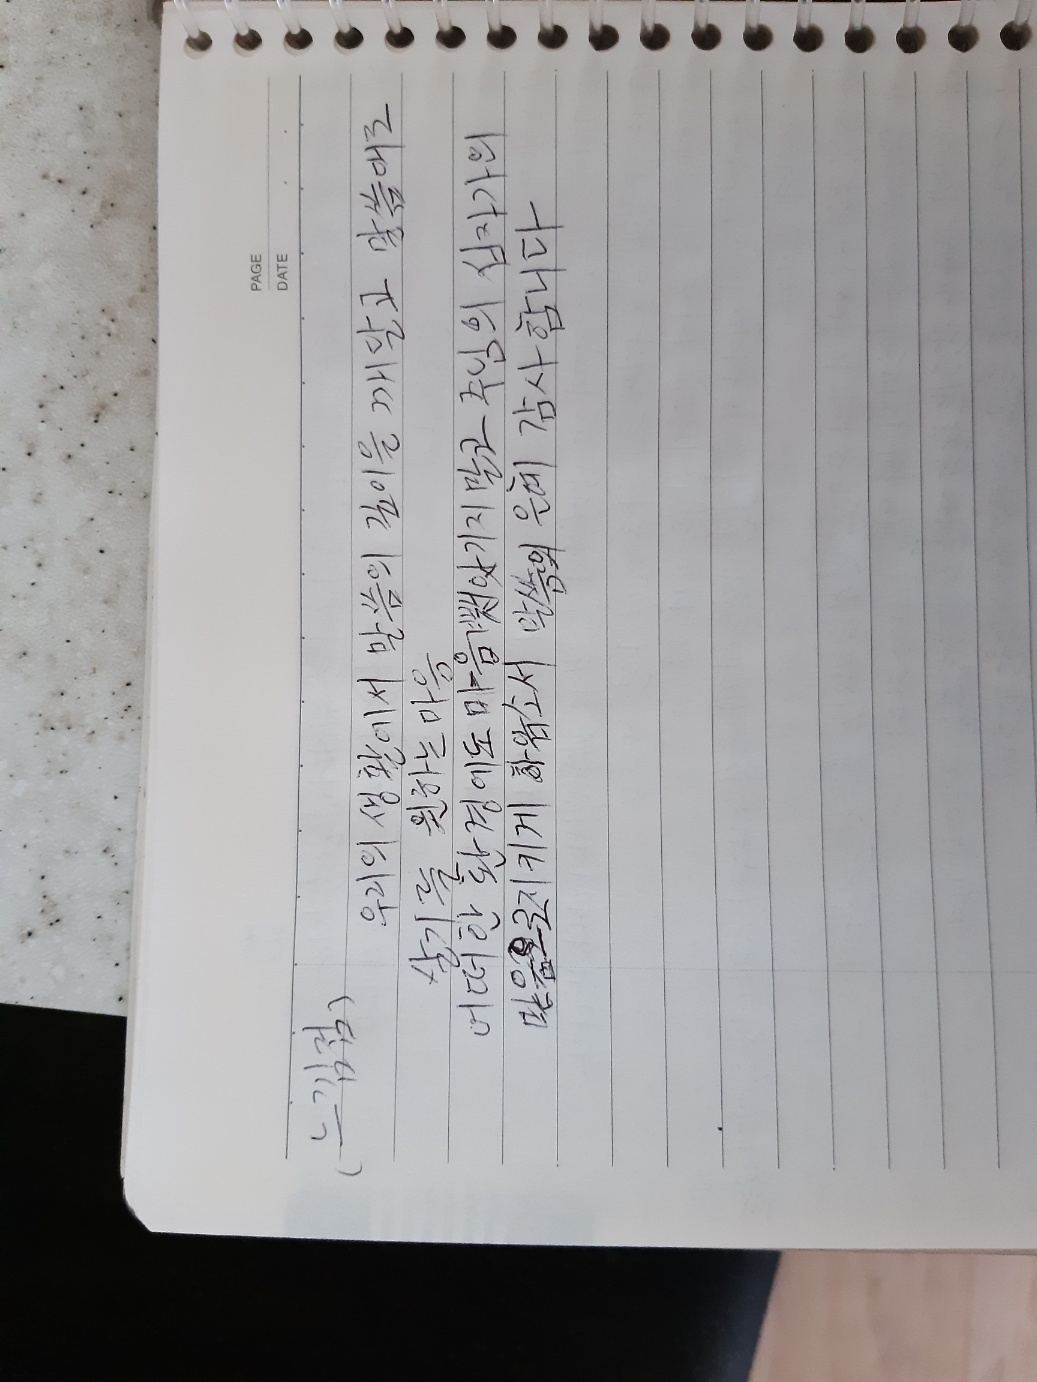 PAGE
DATE
(느낀점)
우리의 생활에서 말씀의 깊이를 깨닫고 말씀대로
살기를 원하는 마음
어떠한 환경에도 마음 뺏앗기지 말고 주님의 십자가의
말씀으로 지키게 하옵소서 말씀의 은혜 감사합니다